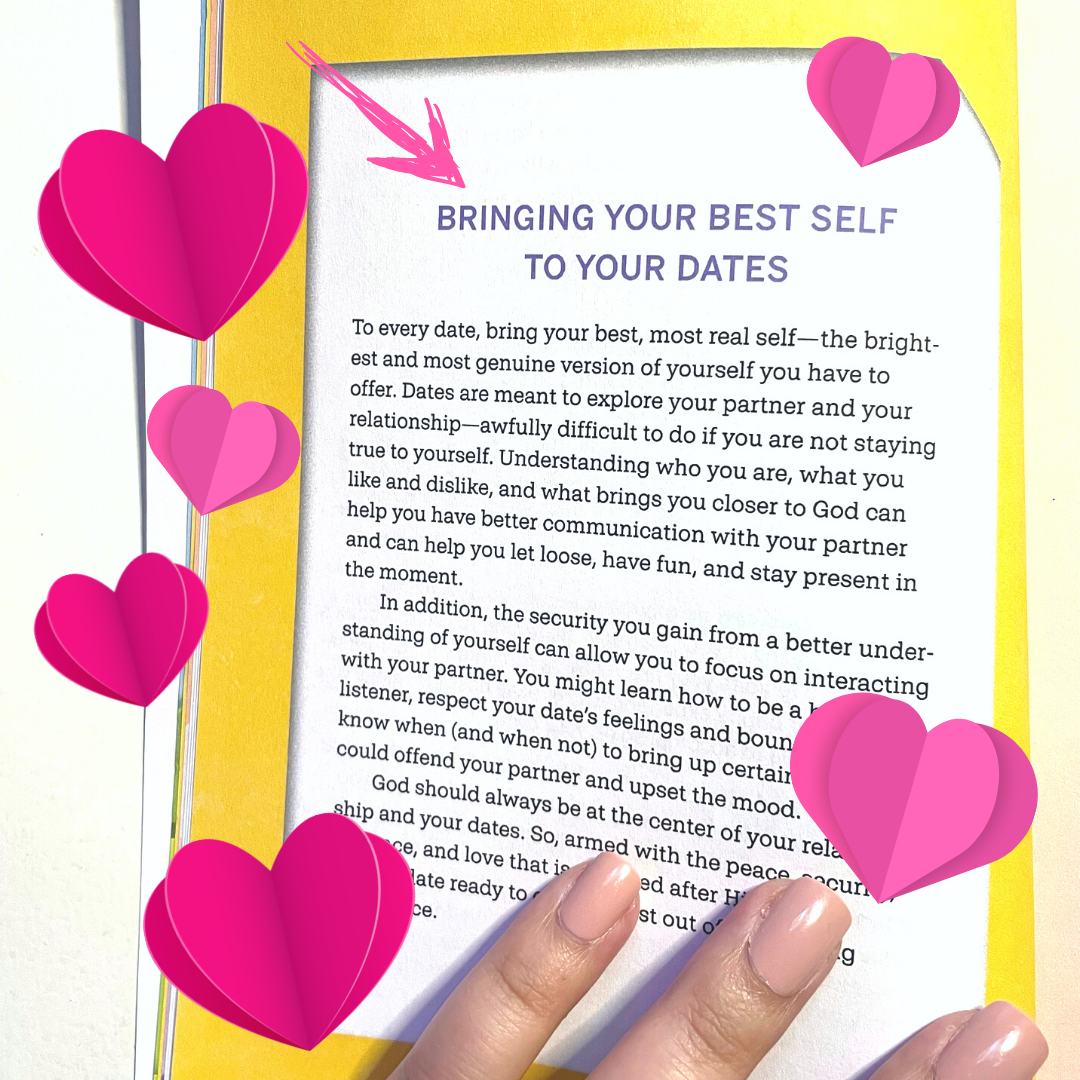 BRINGING YOUR BEST SELF
TO YOUR DATES
To every date, bring your best, most real self—the bright-
est and most genuine version of yourself you have to
offer. Dates are meant to explore your partner and your
relationship—awfully difficult to do if you are not staying
true to yourself. Understanding who you are, what you
like and dislike, and what brings you closer to God can
help you have better communication with your partner
and can help you let loose, have fun, and stay present in
the moment.
In addition, the security you gain from a better under-
standing of yourself can allow you to focus on interacting
with your partner. You might learn how to be a
listener, respect your date's feelings and
know when (and when not) to bring up
could offend your partner and upset the mood.
God should always be at the center of your
ship and your dates. So, armed with the peace,
and love that is after
ready to out